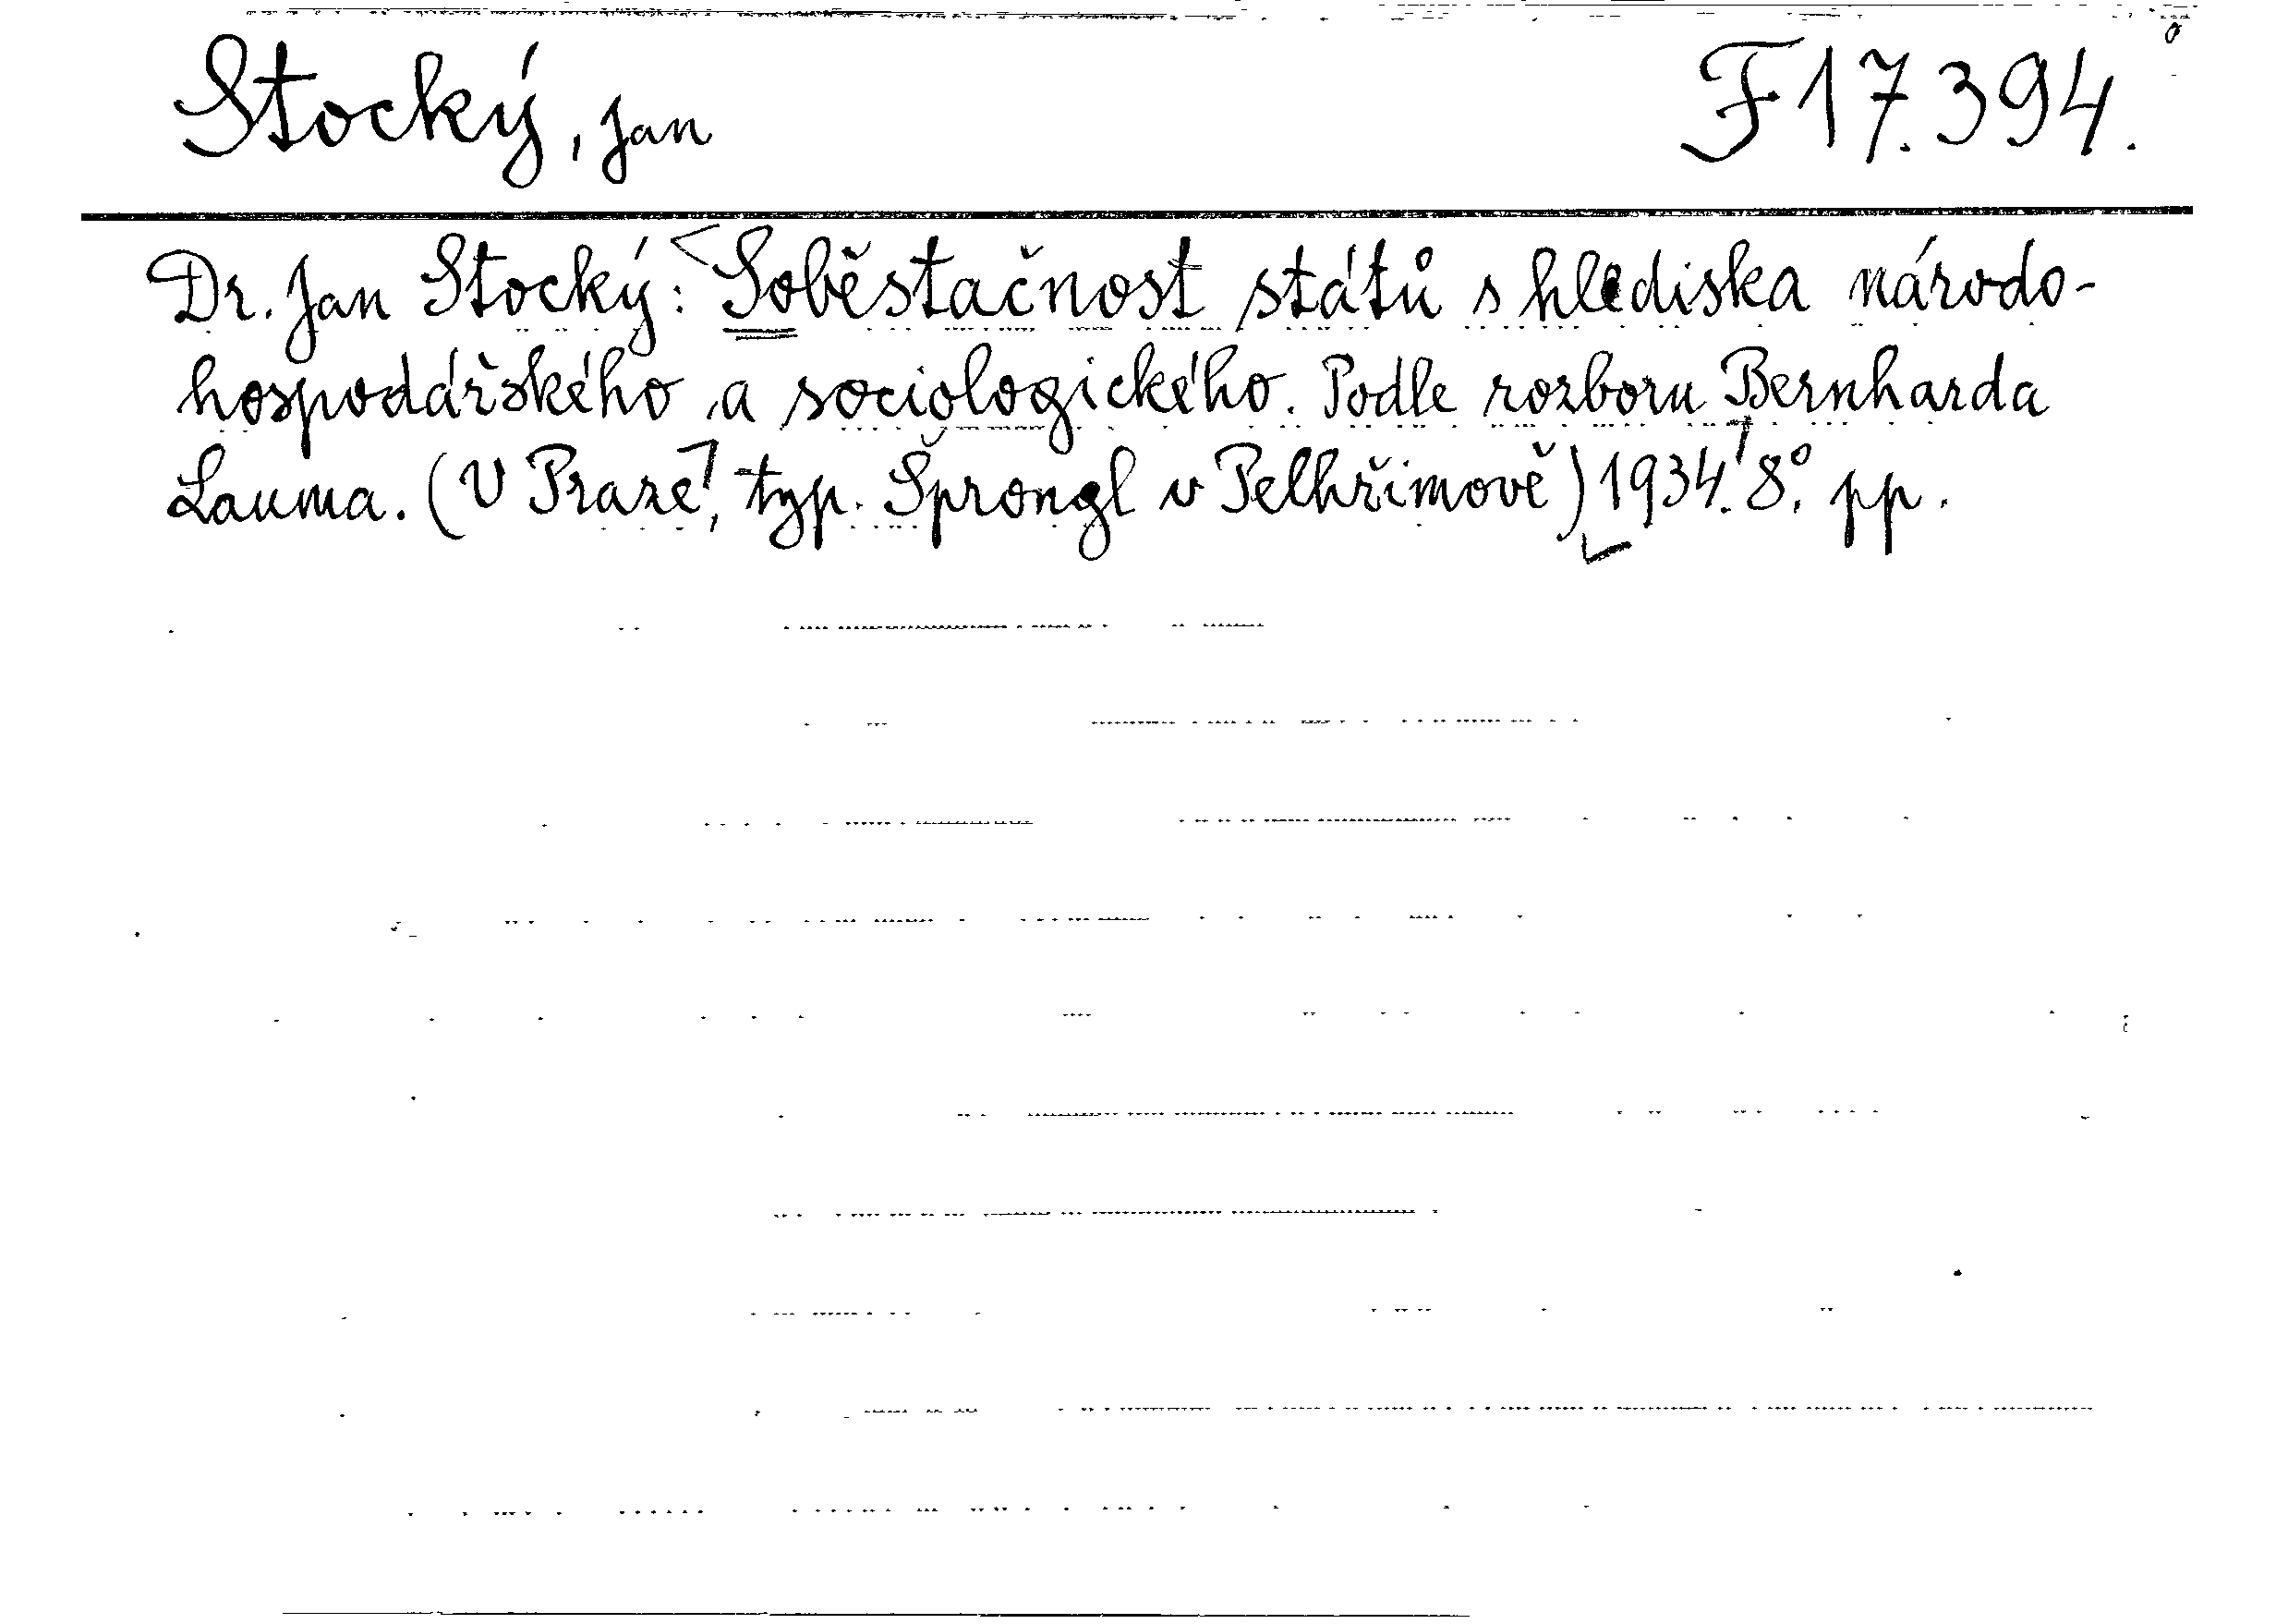 Stocký, Jan F 17.394.
Dr. Jan Stocký: Soběstačnost států s hlediska národo-
hospodářského a sociologického. Podle rozboru Bernharda
Lauma. (V Praze, typ. Šprongl v Pelhřimově) 1934. 8°. pp.